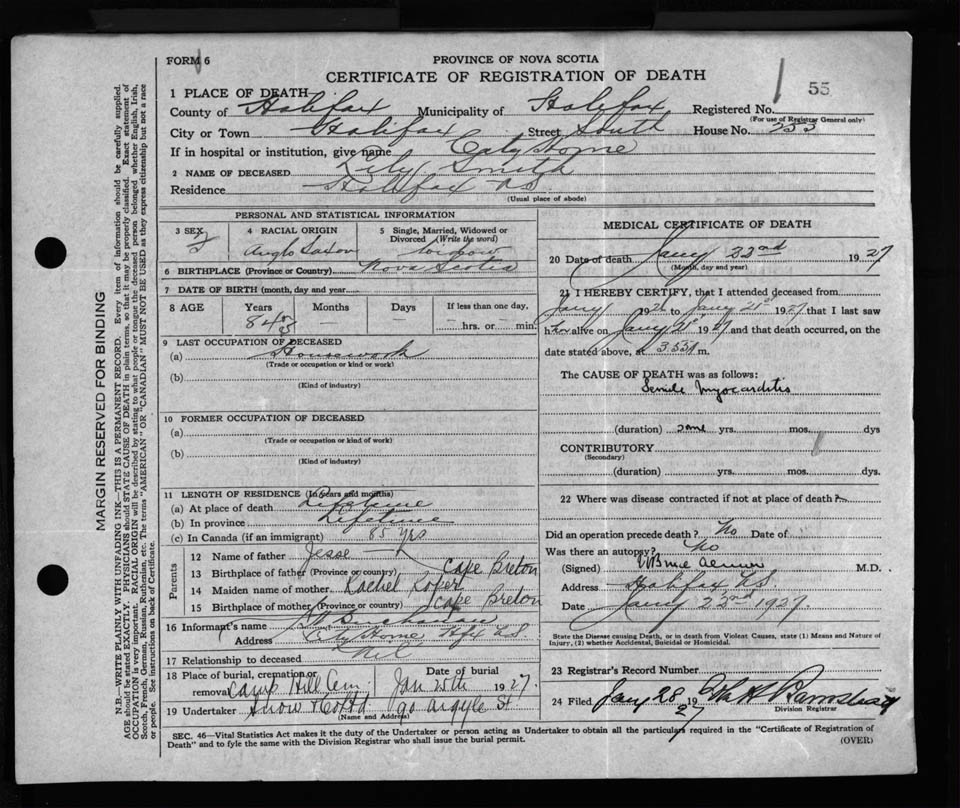 FORM 6
PROVINCE OF NOVA SCOTIA
CERTIFICATE OF REGISTRATION OF DEATH
55
1 PLACE OF DEATH
County of Halifax Municipality of Halifax Registered No.
(For use of Registrar General only)
City or Town Halifax Street South House No. 253
If in hospital or institution, give name City Home
2 NAME OF DECEASED Lily Smith
Residence Halifax N.S.
(Usual place of abode)
PERSONAL AND STATISTICAL INFORMATION
3 SEX 4 RACIAL ORIGIN 5 Single, Married, Widowed or Divorced (Write the word)
Anglo Saxon widow
6 BIRTHPLACE (Province or Country) Nova Scotia
7 DATE OF BIRTH (month, day and year)
8 AGE Years Months Days If less than one day,
84 or 85 — — hrs. or min.
9 LAST OCCUPATION OF DECEASED
(a) Housework
(Trade or occupation or kind of work)
(b)
(Kind of industry)
10 FORMER OCCUPATION OF DECEASED
(a)
(Trade or occupation or kind of work)
(b)
(Kind of industry)
11 LENGTH OF RESIDENCE (In years and months)
(a) At place of death Lifetime
(b) In province Lifetime
(c) In Canada (if an immigrant) 85 yrs
Parents
12 Name of father Jesse —
13 Birthplace of father (Province or country) Cape Breton
14 Maiden name of mother Rachel Roper
15 Birthplace of mother (Province or country) Cape Breton
16 Informant's name Buchanan
Address City Home Hfx N.S.
17 Relationship to deceased Nil
18 Place of burial, cremation or removal Camp Hill Cem Date of burial Jan 25th 1927
19 Undertaker Snow & Co Ltd 90 Argyle St
(Name and Address)
MEDICAL CERTIFICATE OF DEATH
20 Date of death Jany 22nd 1927
(Month, day and year)
21 I HEREBY CERTIFY, that I attended deceased from
Jany 1926 to Jany 21st 1927 that I last saw
her alive on Jany 21st 1927 and that death occurred, on the
date stated above, at m.
The CAUSE OF DEATH was as follows:
Senile Myocarditis
(duration) some yrs. mos. dys
CONTRIBUTORY
(Secondary)
(duration) yrs. mos. dys.
22 Where was disease contracted if not at place of death?
Did an operation precede death? No Date of
Was there an autopsy? No
(Signed) M.D.
Address Halifax N.S.
Date Jany 22nd 1927.
State the Disease causing Death, or in death from Violent Causes, state (1) Means and Nature of
Injury, (2) whether Accidental, Suicidal or Homicidal.
23 Registrar's Record Number
24 Filed Jany 28 1927
Division Registrar
SEC. 46—Vital Statistics Act makes it the duty of the Undertaker or person acting as Undertaker to obtain all the particulars required in the "Certificate of Registration of
Death" and to fyle the same with the Division Registrar who shall issue the burial permit.
(OVER)
MARGIN RESERVED FOR BINDING
N.B.—WRITE PLAINLY WITH UNFADING INK—THIS IS A PERMANENT RECORD. Every item of information should be carefully supplied.
AGE should be stated EXACTLY. PHYSICIANS should STATE CAUSE OF DEATH in plain terms, so that it may be properly classified. Exact statement of
OCCUPATION is very important. RACIAL ORIGIN will be described by stating to what people or tongue the deceased person belonged whether English, Irish,
Scotch, French, German, Russian, Ruthenian, etc. The terms "AMERICAN" OR "CANADIAN" MUST NOT BE USED as they express citizenship but not a race
or people. See instructions on back of Certificate.